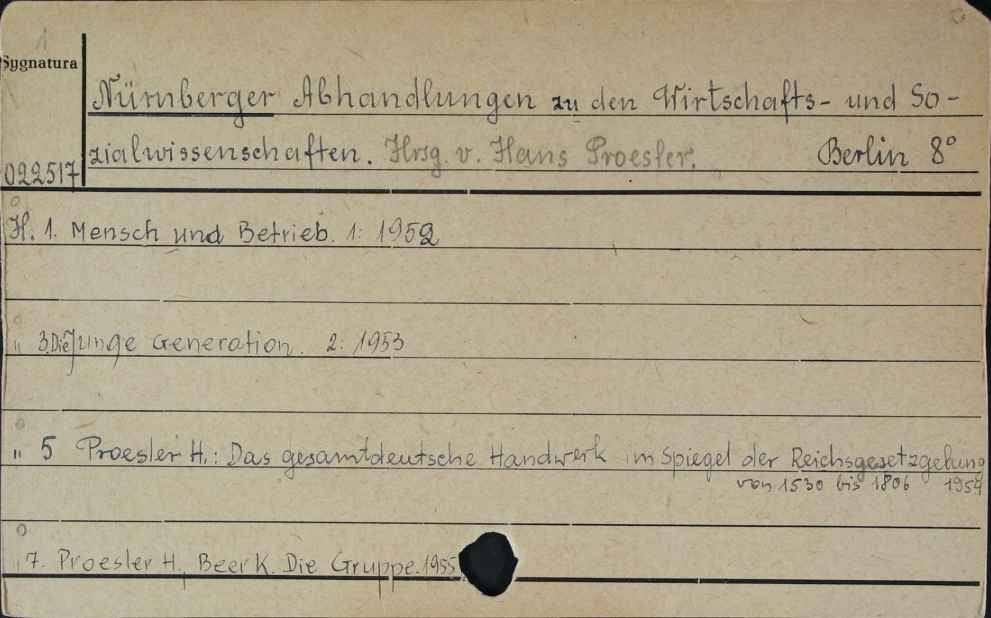 Sygnatura
Nürnberger Abhandlungen zu den Wirtschafts- und So-
zialwissenschaften. Hrsg. v. Hans Proesler. Berlin 8°
022517
H. 1. Mensch und Betrieb. 1: 1952
" 3. Die Junge Generation. 2: 1953
" 5 Proesler H.: Das gesamtdeutsche Handwerk im Spiegel der Reichsgesetzgebung
von 1530 bis 1806 1954
" 7. Proesler H., Beer K. Die Gruppe. 1955